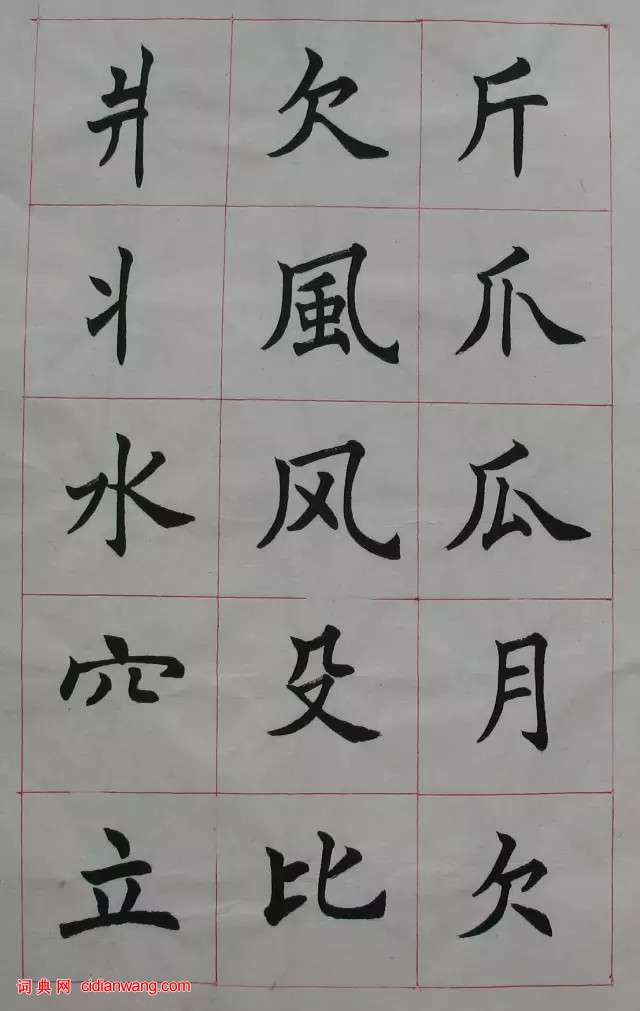 斤爪瓜月欠
欠風风殳比
爿丬水穴立
词典网 cidianwang.com